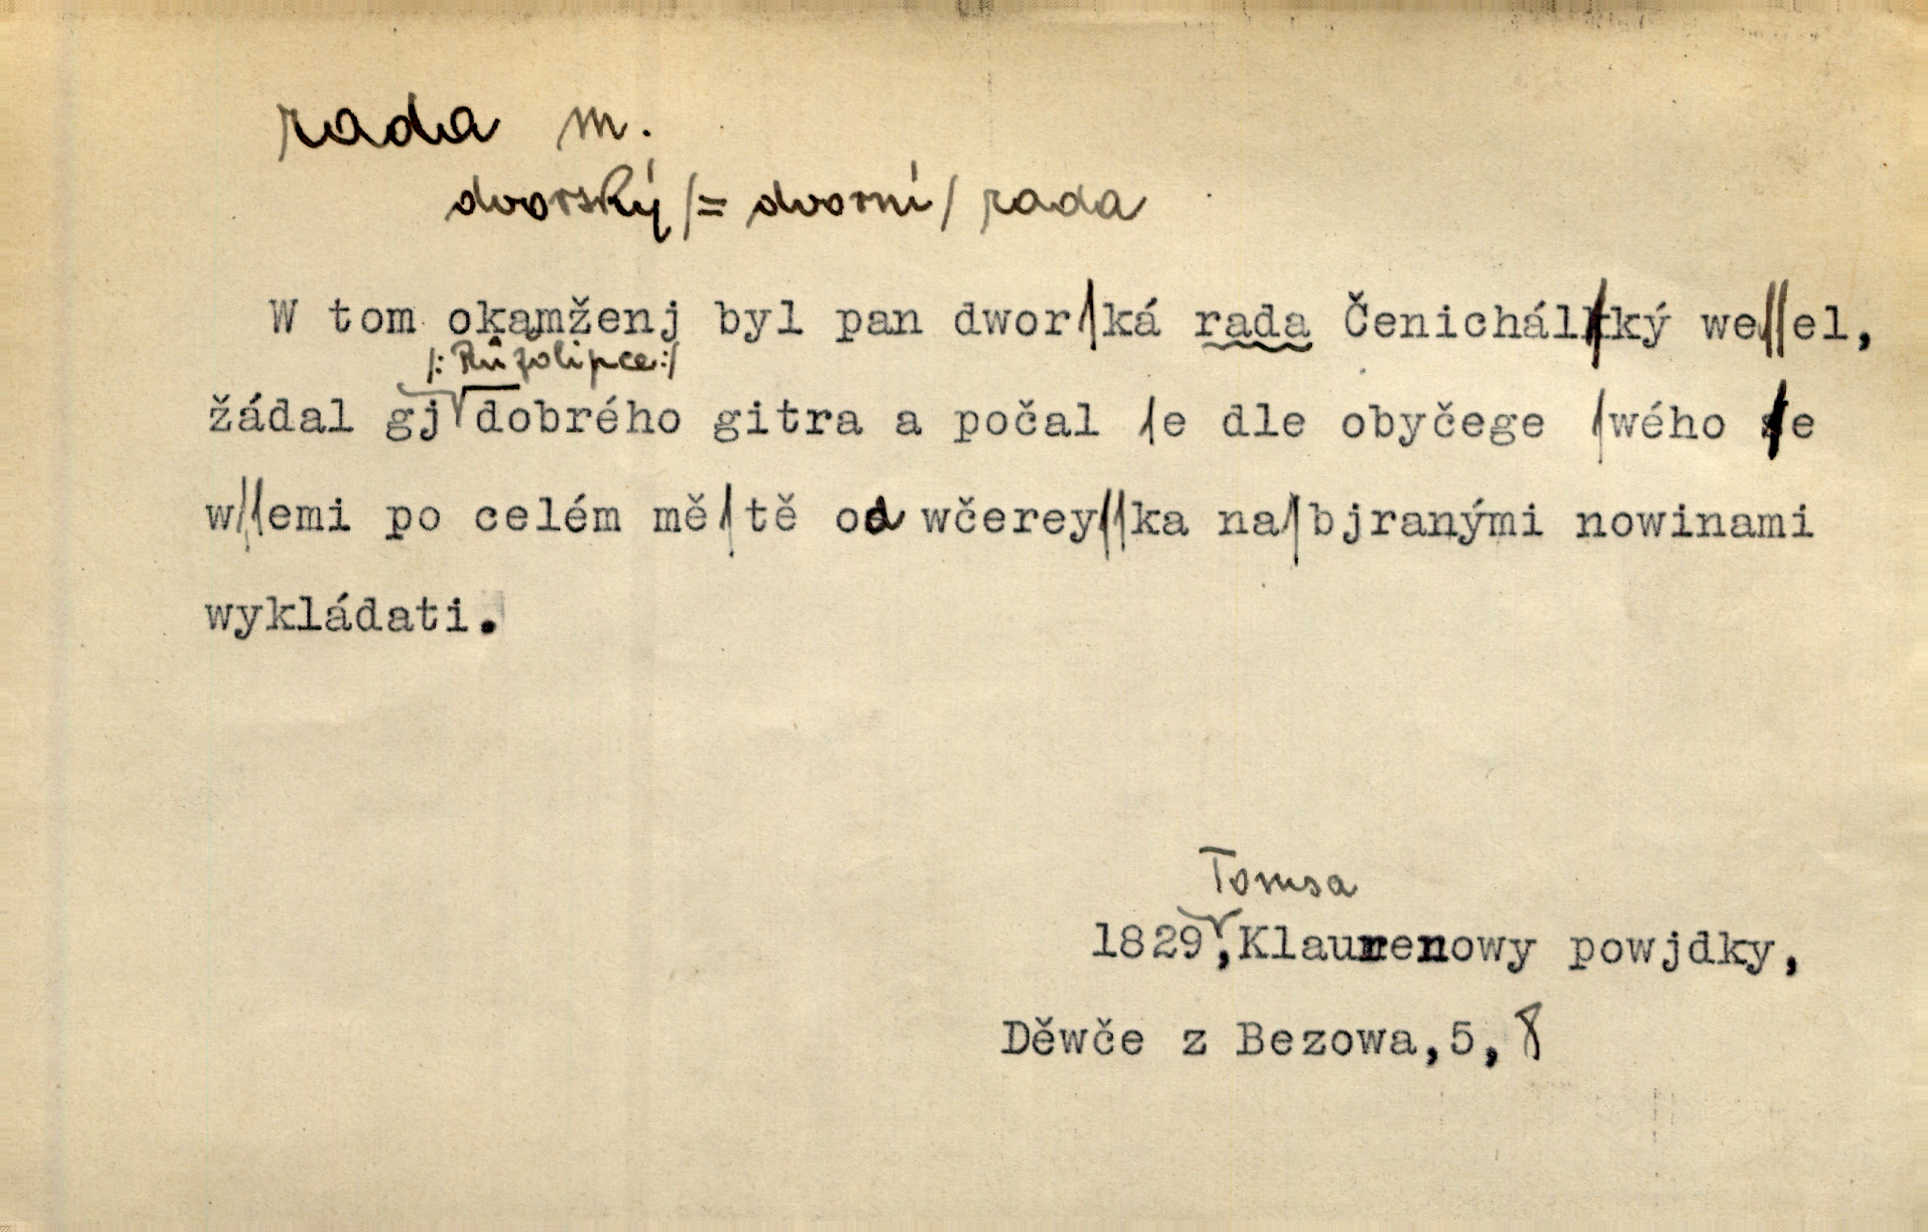 rada m.
dvorský /= dvorní/ rada
W tom okamženj byl pan dworſká rada Čenichálſký weſſel,
/: Růžolipce :/
žádal gj dobrého gitra a počal ſe dle obyčege ſwého ſe
wſſemi po celém měſtě od wčereyſſka naſbjranými nowinami
wykládati.
Tomsa
1829, Klaurenowy powjdky,
Děwče z Bezowa, 5, 8